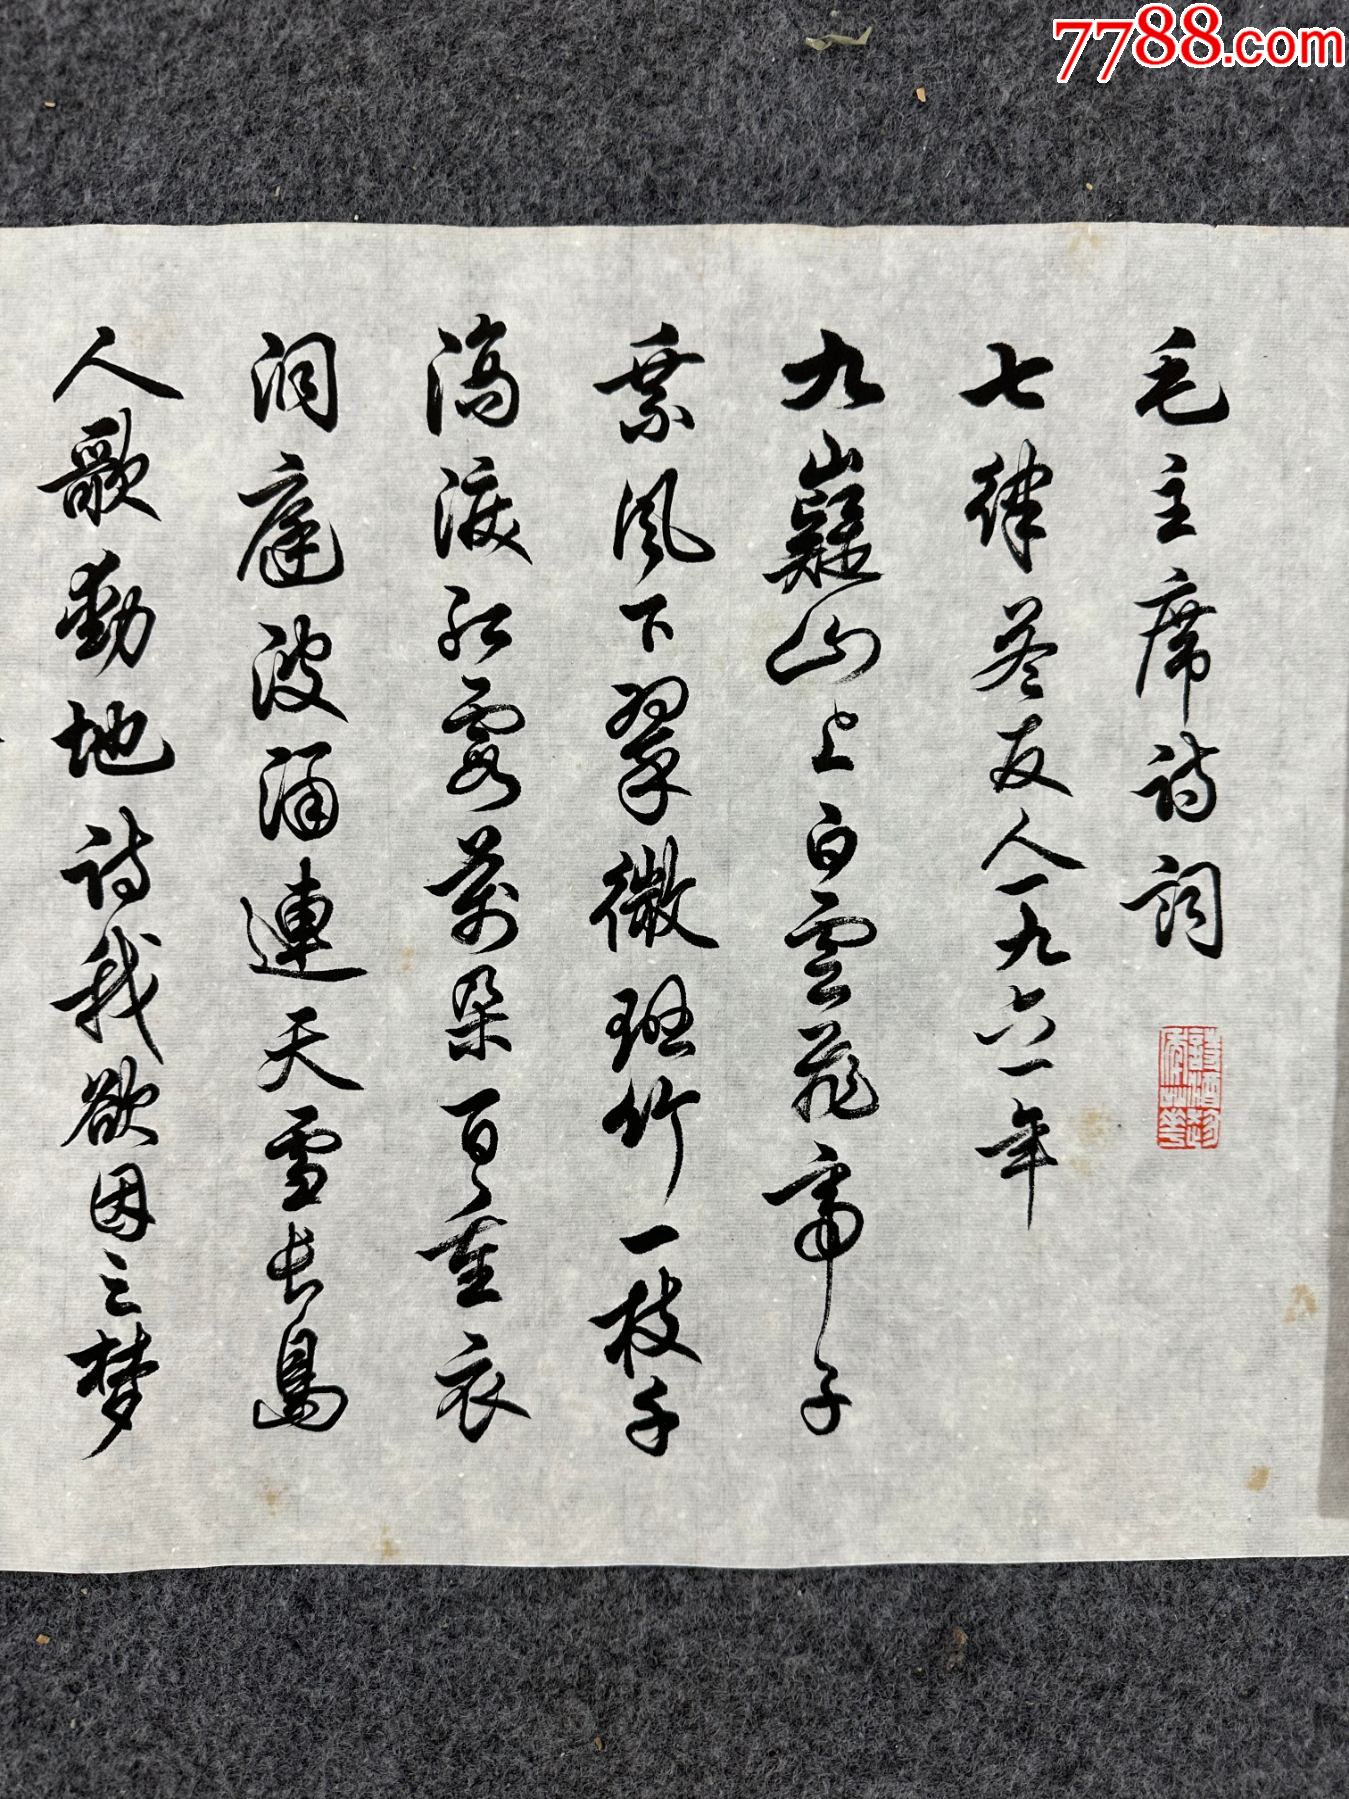 7788.com
毛主席诗词
七律答友人一九六一年
九嶷山上白雲飛帝子
乘风下翠微斑竹一枝千
滴淚红霞萬朵百重衣
洞庭波涌連天雪长島
人歌動地诗我欲因之梦